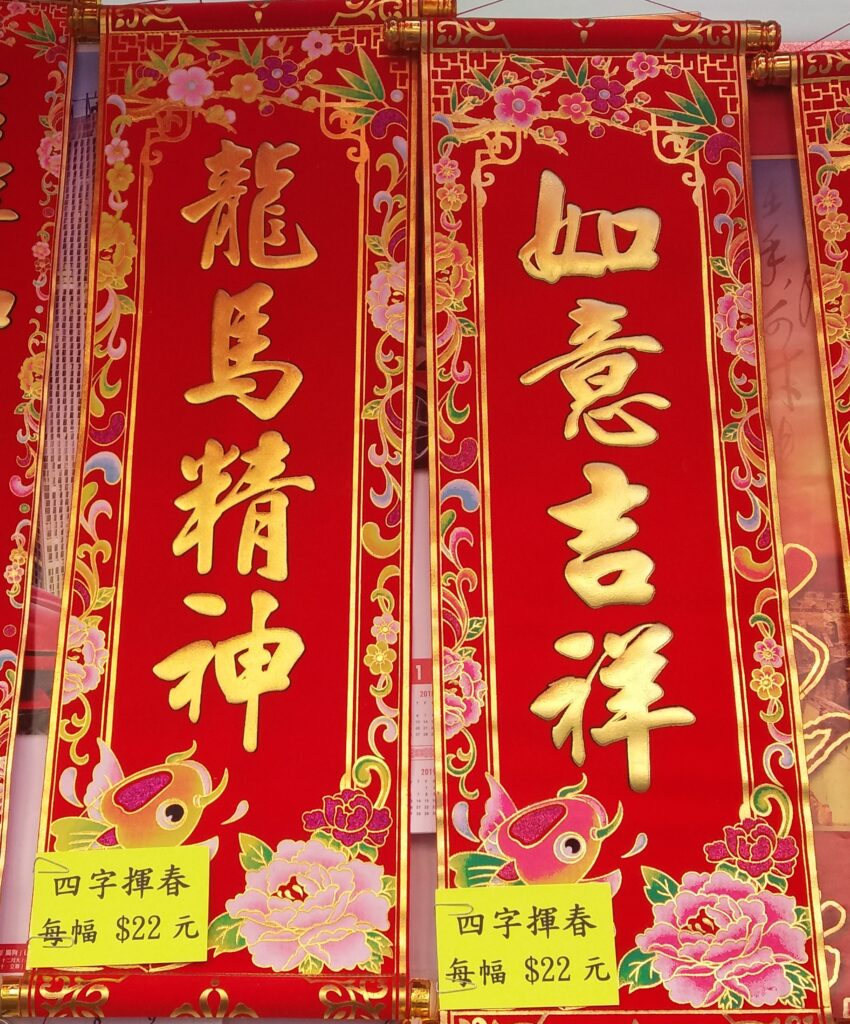 龍馬精神
如意吉祥
四字揮春
每幅 $22 元
四字揮春
每幅 $22 元